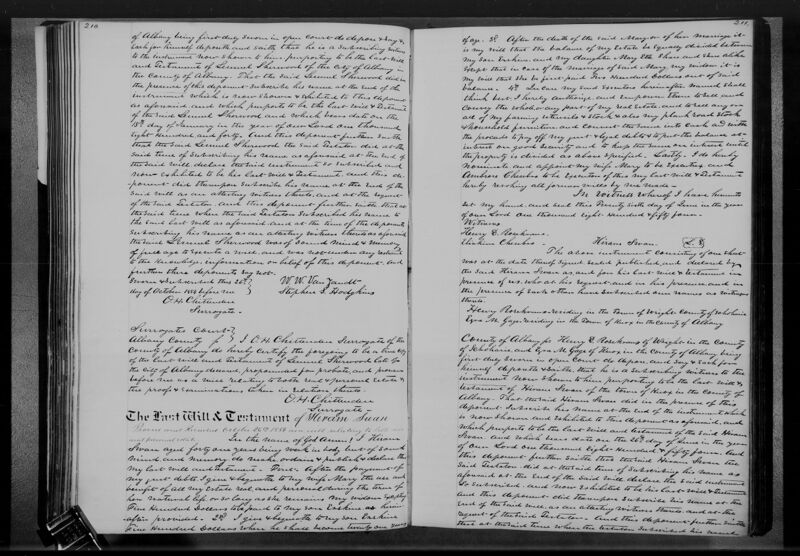 210
of Albany being first duly sworn in open Court do depose & say &
each for himself deposeth and saith that he is a subscribing witness
to the instrument now shown to him purporting to be the last Will
and Testament of Lemuel Sherwood of the City of Albany
the County of Albany. That the said Lemuel Sherwood did in
the presence of this deponent subscribe his name at the end of the
instrument which is now shown & exhibited to this deponent
as aforesaid and which purports to be the last Will & Testament
of the said Lemuel Sherwood and which bears date on the
18th day of January in the year of our Lord one thousand
eight hundred and forty. And this deponent further saith
that the said Lemuel Sherwood the said Testator did at the
said time of subscribing his name as aforesaid at the end of
the said will declare the said instrument so subscribed and
now exhibited to be his last will & Testament, and this de-
ponent did thereupon subscribe his name at the end of the
said will as an attesting witness thereto, and at the request
of the said Testator. And this deponent further saith that at
the said time when the said Testator subscribed his name to
the said last will as aforesaid and at the time of the deponents
subscribing his name as an attesting witness thereto as aforesaid
the said Lemuel Sherwood was of sound mind & memory
of full age to execute a will, and was not under any restraint
to the knowledge, information or belief of this deponent. And
further these deponents say not.
Sworn & subscribed this 20th
day of October 1854 before me
W. W. Van Zandt
Stephen S. Hodgkins
O. H. Chittenden
Surrogate.
Surrogates Court
Albany County ss I O. H. Chittenden Surrogate of the
County of Albany do hereby certify the foregoing to be a true copy
of the last will and testament of Lemuel Sherwood late of
the City of Albany deceased, propounded for probate, and proven
before me as a will relating to both real & personal estate &
the proof & examinations taken in relation thereto
O. H. Chittenden
Surrogate
The Last Will & Testament of Hiram Swan
In the name of God Amen, I Hiram
Swan aged forty one years being weak in body but of sound
mind and memory do make ordain & publish & declare this
my last will and testament. First, After the payment of
my just debts I give & bequeath to my wife Mary the use and
benefit of all my estate real and personal during the term of
her natural life or so long as she remains my widow Excepting
Five Hundred Dollars to be paid to my son Erskine as herein
after provided. 2d I give & bequeath to my son Erskine
Five Hundred Dollars when he shall become twenty one years
211
of age. 3d After the death of the said Mary or of her marriage it
is my will that the balance of my Estate be equally divided between
my son Erskine and my daughter Mary Etta share and share alike
except that in case of the marriage of said Mary my widow it is
my will that she be first paid Two Hundred Dollars out of said
balance. 4th In case my said Executors hereinafter named shall
think best I hereby authorize and empower them to sell and
convey the whole or any part of my real estate and to sell any or
all of my farming utensils & stock & also my plank road stock
& household furniture and convert the same into cash and with
the proceeds to pay off my just & legal debts & to put the balance at
interest on good security and to keep the same on interest until
the property is divided as above specified. Lastly. I do hereby
nominate and appoint my wife Mary to be Executrix and
Ambrose Chesebro to be Executor of this my last will & Testament
hereby revoking all former wills by me made.
In Witness whereof I have hereunto
set my hand and seal this Twenty sixth day of June in the year
of our Lord one thousand eight hundred & fifty four.
Witness
Henry C. Roszkrans
Hiram Swan L.S.
The above instrument consisting of one sheet
was at the date thereof signed sealed published and declared by
the said Hiram Swan as, and for his last will & testament in
presence of us, who at his request and in his presence and in
the presence of each other have subscribed our names as witnesses
thereto.
Ezra M. Gage residing in the Town of Knox in the County of Albany
of Schoharie and Ezra M. Gage of Knox in the County of Albany being
first duly sworn in open Court do depose and say & each for
himself deposeth & saith, that he is a subscribing witness to the
instrument now shown to him purporting to be the last will &
testament of Hiram Swan of the town of Knox in the County of
Albany. That the said Hiram Swan did in the presence of this
deponent subscribe his name at the end of the instrument which
is now shown and exhibited to this deponent as aforesaid, and
which purports to be the last will and testament of the said Hiram
Swan and which bears date on the 26th day of June in the year
of our Lord one thousand eight hundred & fifty four. And
this deponent further saith that the said Hiram Swan the
said Testator did at the said time of subscribing his name as
aforesaid at the end of the said will declare the said instrument
so subscribed and now exhibited to be his last will & testament
And this deponent did thereupon subscribe his name at the
end of the said will, as an attesting witness thereto and at the
request of the said Testator. And this deponent further saith
that at the said time when the Testator subscribed his name